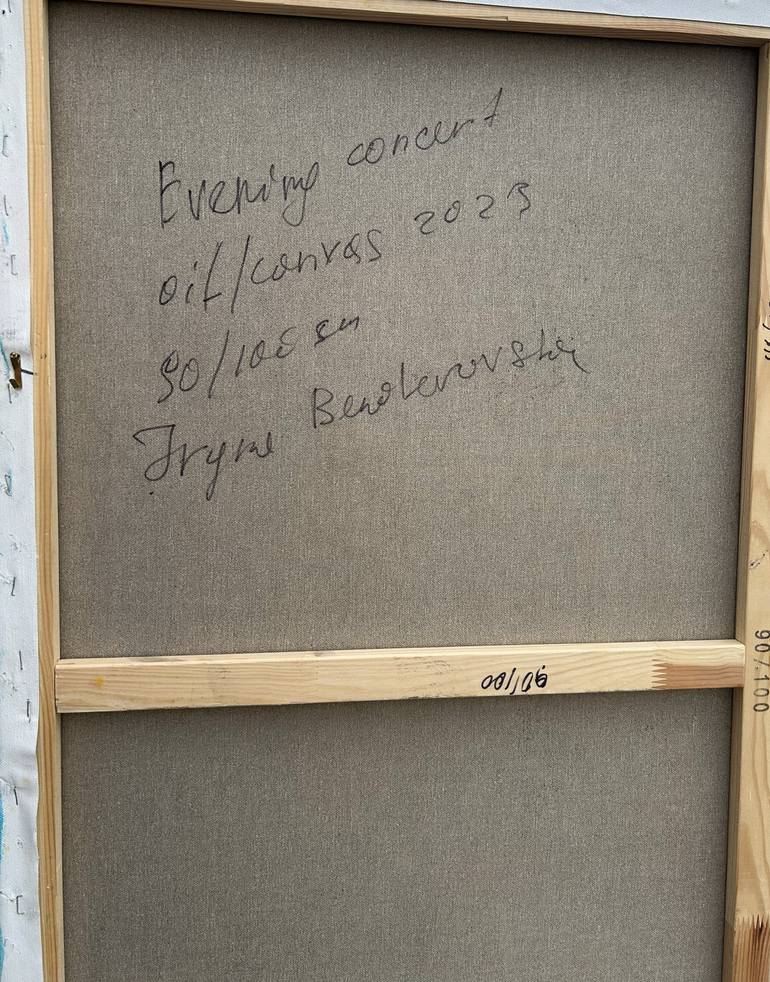 Evening concert
oil/canvas 2023
90/100 sm
Iryna
90/100
90/100